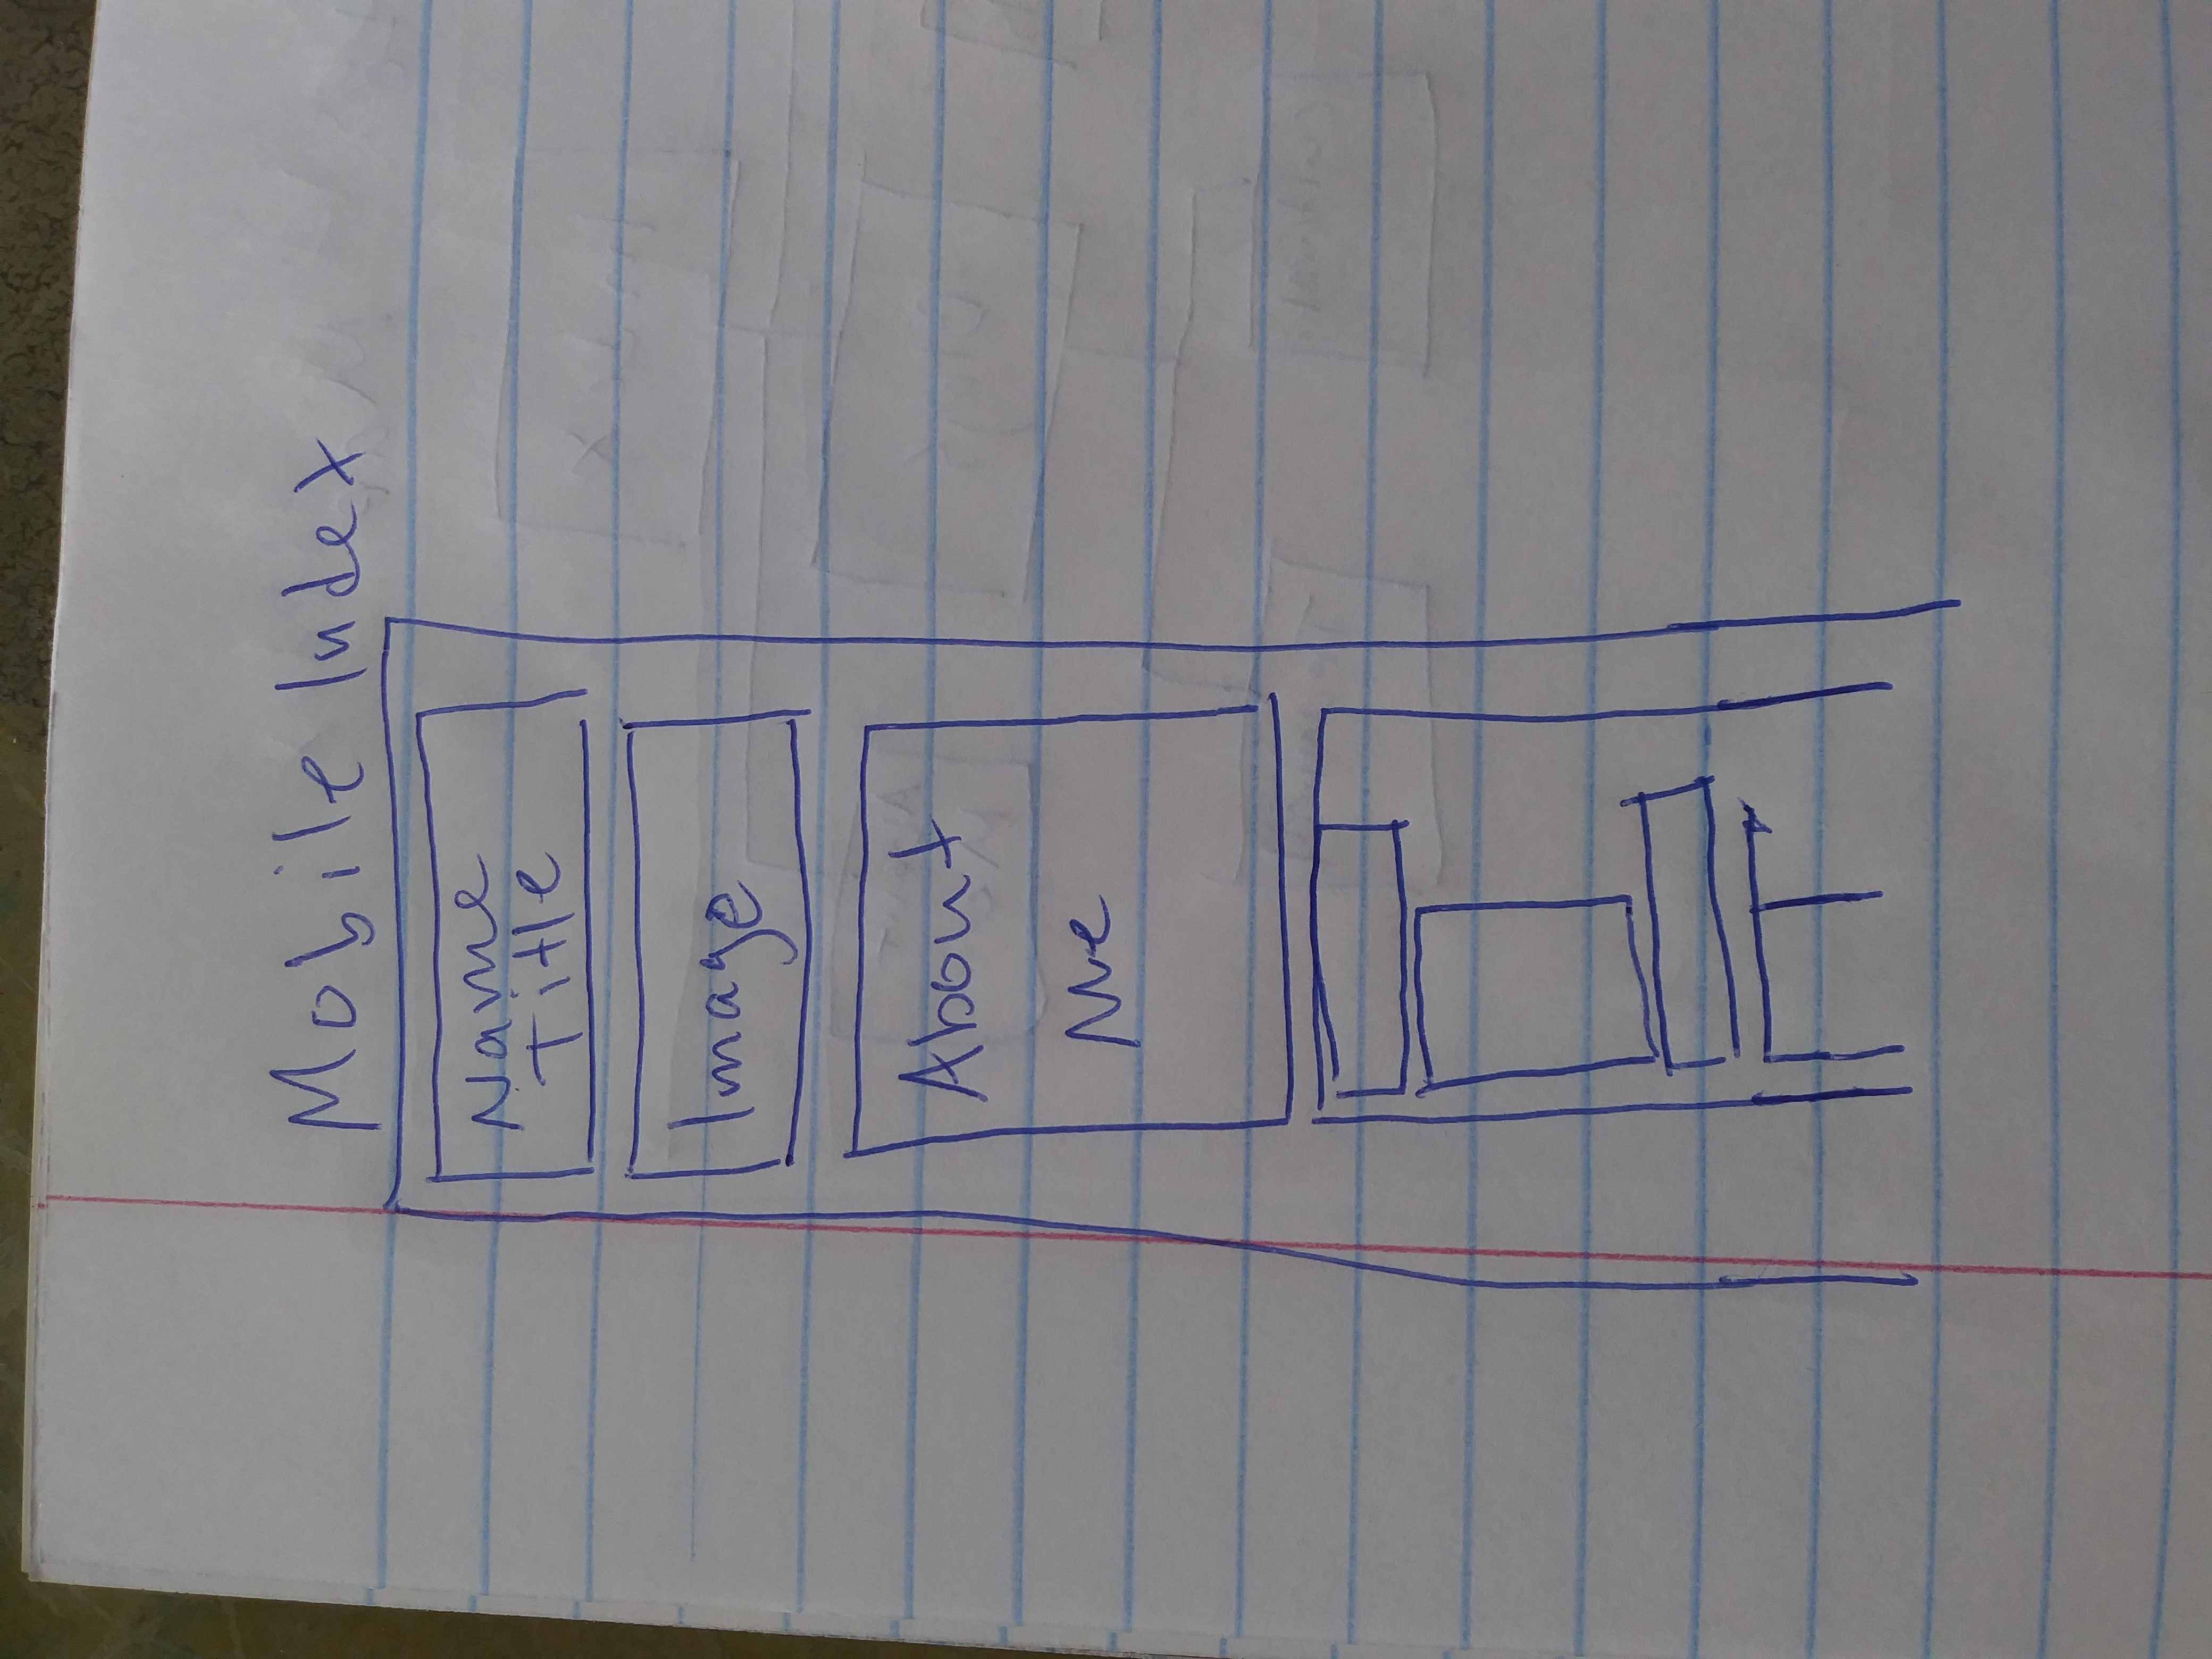 Mobile Index
Name
Title
Image
About
Me